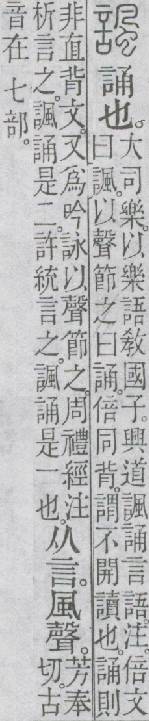 諷 誦也。
大司樂。以樂語教國子。興道諷誦言語。注。倍文
曰諷。以聲節之曰誦。倍同背。謂不開讀也。誦則
非直背文。又爲吟詠以聲節之。周禮經注
析言之。諷誦是二。許統言之。諷誦是一也。
从言。風聲。
芳奉
切。古
音在七部。